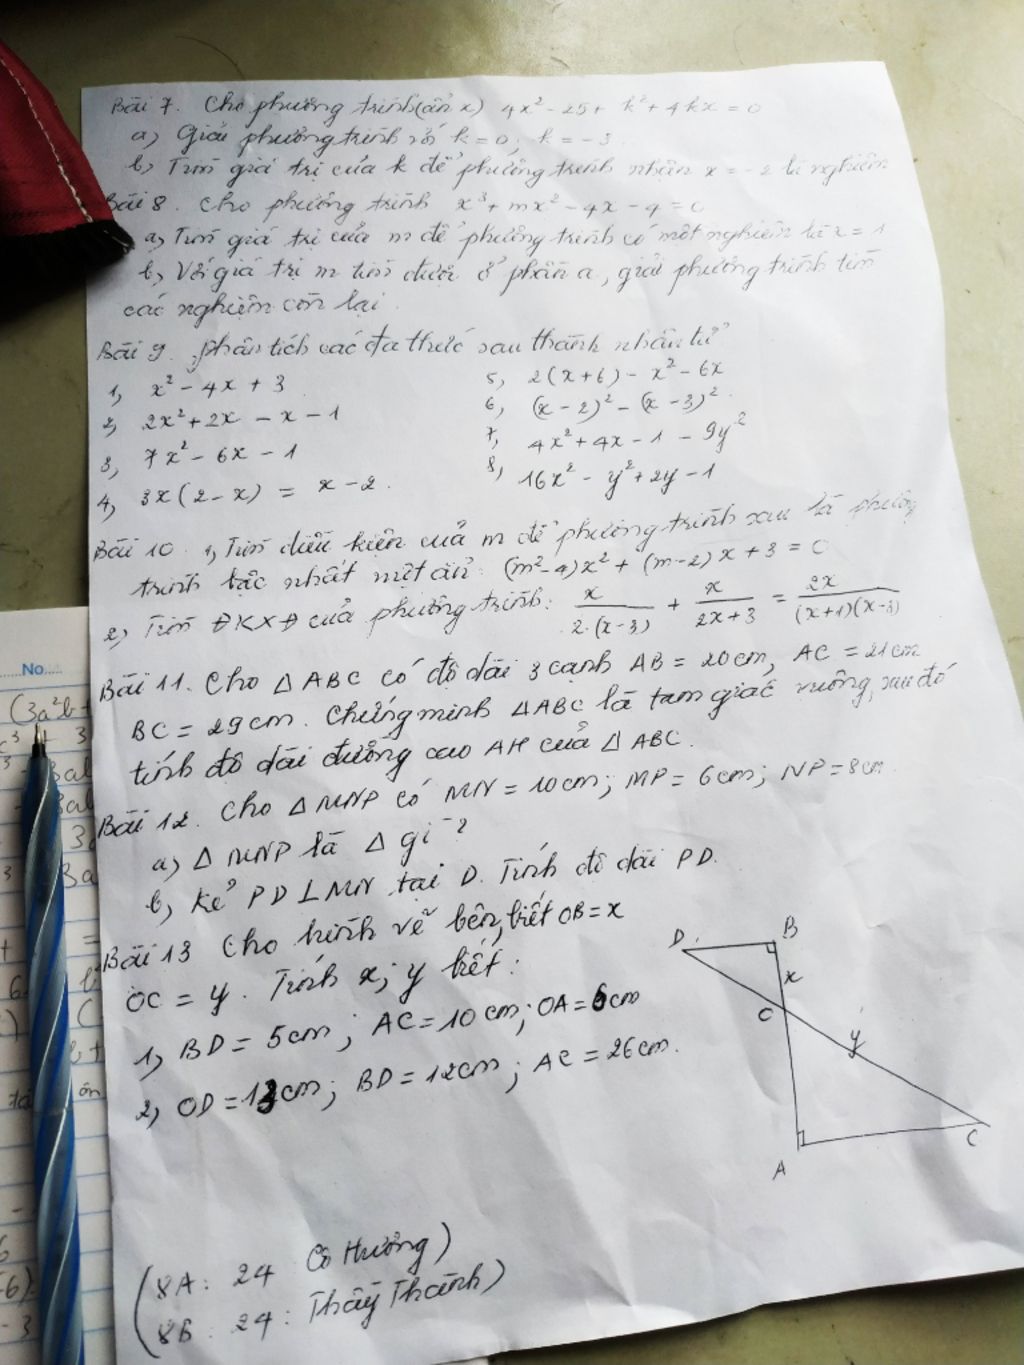 Bài 7. Cho phương trình (ẩn x) 4x² - 25 + k² + 4kx = 0
a) Giải phương trình với k = 0; k = -3
b) Tìm giá trị của k để phương trình nhận x = -2 là nghiệm
Bài 8. Cho phương trình x³ + mx² - 4x - 4 = 0
a) Tìm giá trị của m để phương trình có một nghiệm là x = 1
b) Với giá trị m tìm được ở phần a, giải phương trình tìm
các nghiệm còn lại.
Bài 9. Phân tích các đa thức sau thành nhân tử
1, x² - 4x + 3
2, 2x² + 2x - x - 1
3, 7x² - 6x - 1
4, 3x(2 - x) = x - 2.
5, 2(x + 6) - x² - 6x
6, (x - 2)² - (x - 3)².
7, 4x² + 4x - 1 - 9y²
8, 16x² - y² + 2y - 1
Bài 10. 1, Tìm điều kiện của m để phương trình sau là phương
trình bậc nhất một ẩn: (m² - 4)x² + (m - 2)x + 3 = 0
2, Tìm ĐKXĐ của phương trình: x/2.(x-3) + x/2x+3 = 2x/(x+1)(x-3)
Bài 11. Cho △ABC có độ dài 3 cạnh AB = 20cm, AC = 21cm
BC = 29cm. Chứng minh △ABC là tam giác vuông, sau đó
tính độ dài đường cao AH của △ABC.
Bài 12. Cho △MNP có MN = 10cm; MP = 6cm; NP = 8cm.
a) △MNP là △ gì?
b, Kẻ PD ⊥ MN tại D. Tính độ dài PD.
Bài 13 Cho hình vẽ bên, biết OB = x
OC = y. Tính x; y biết:
1, BD = 5cm; AC = 10cm; OA = 6cm
2, OD = 13cm; BD = 12cm; AC = 26cm.
D
B
x
O
y
A
C
(8A: 24 Cô Hường)
(8B: 24: Thầy Thành)
No.
(3a²b+